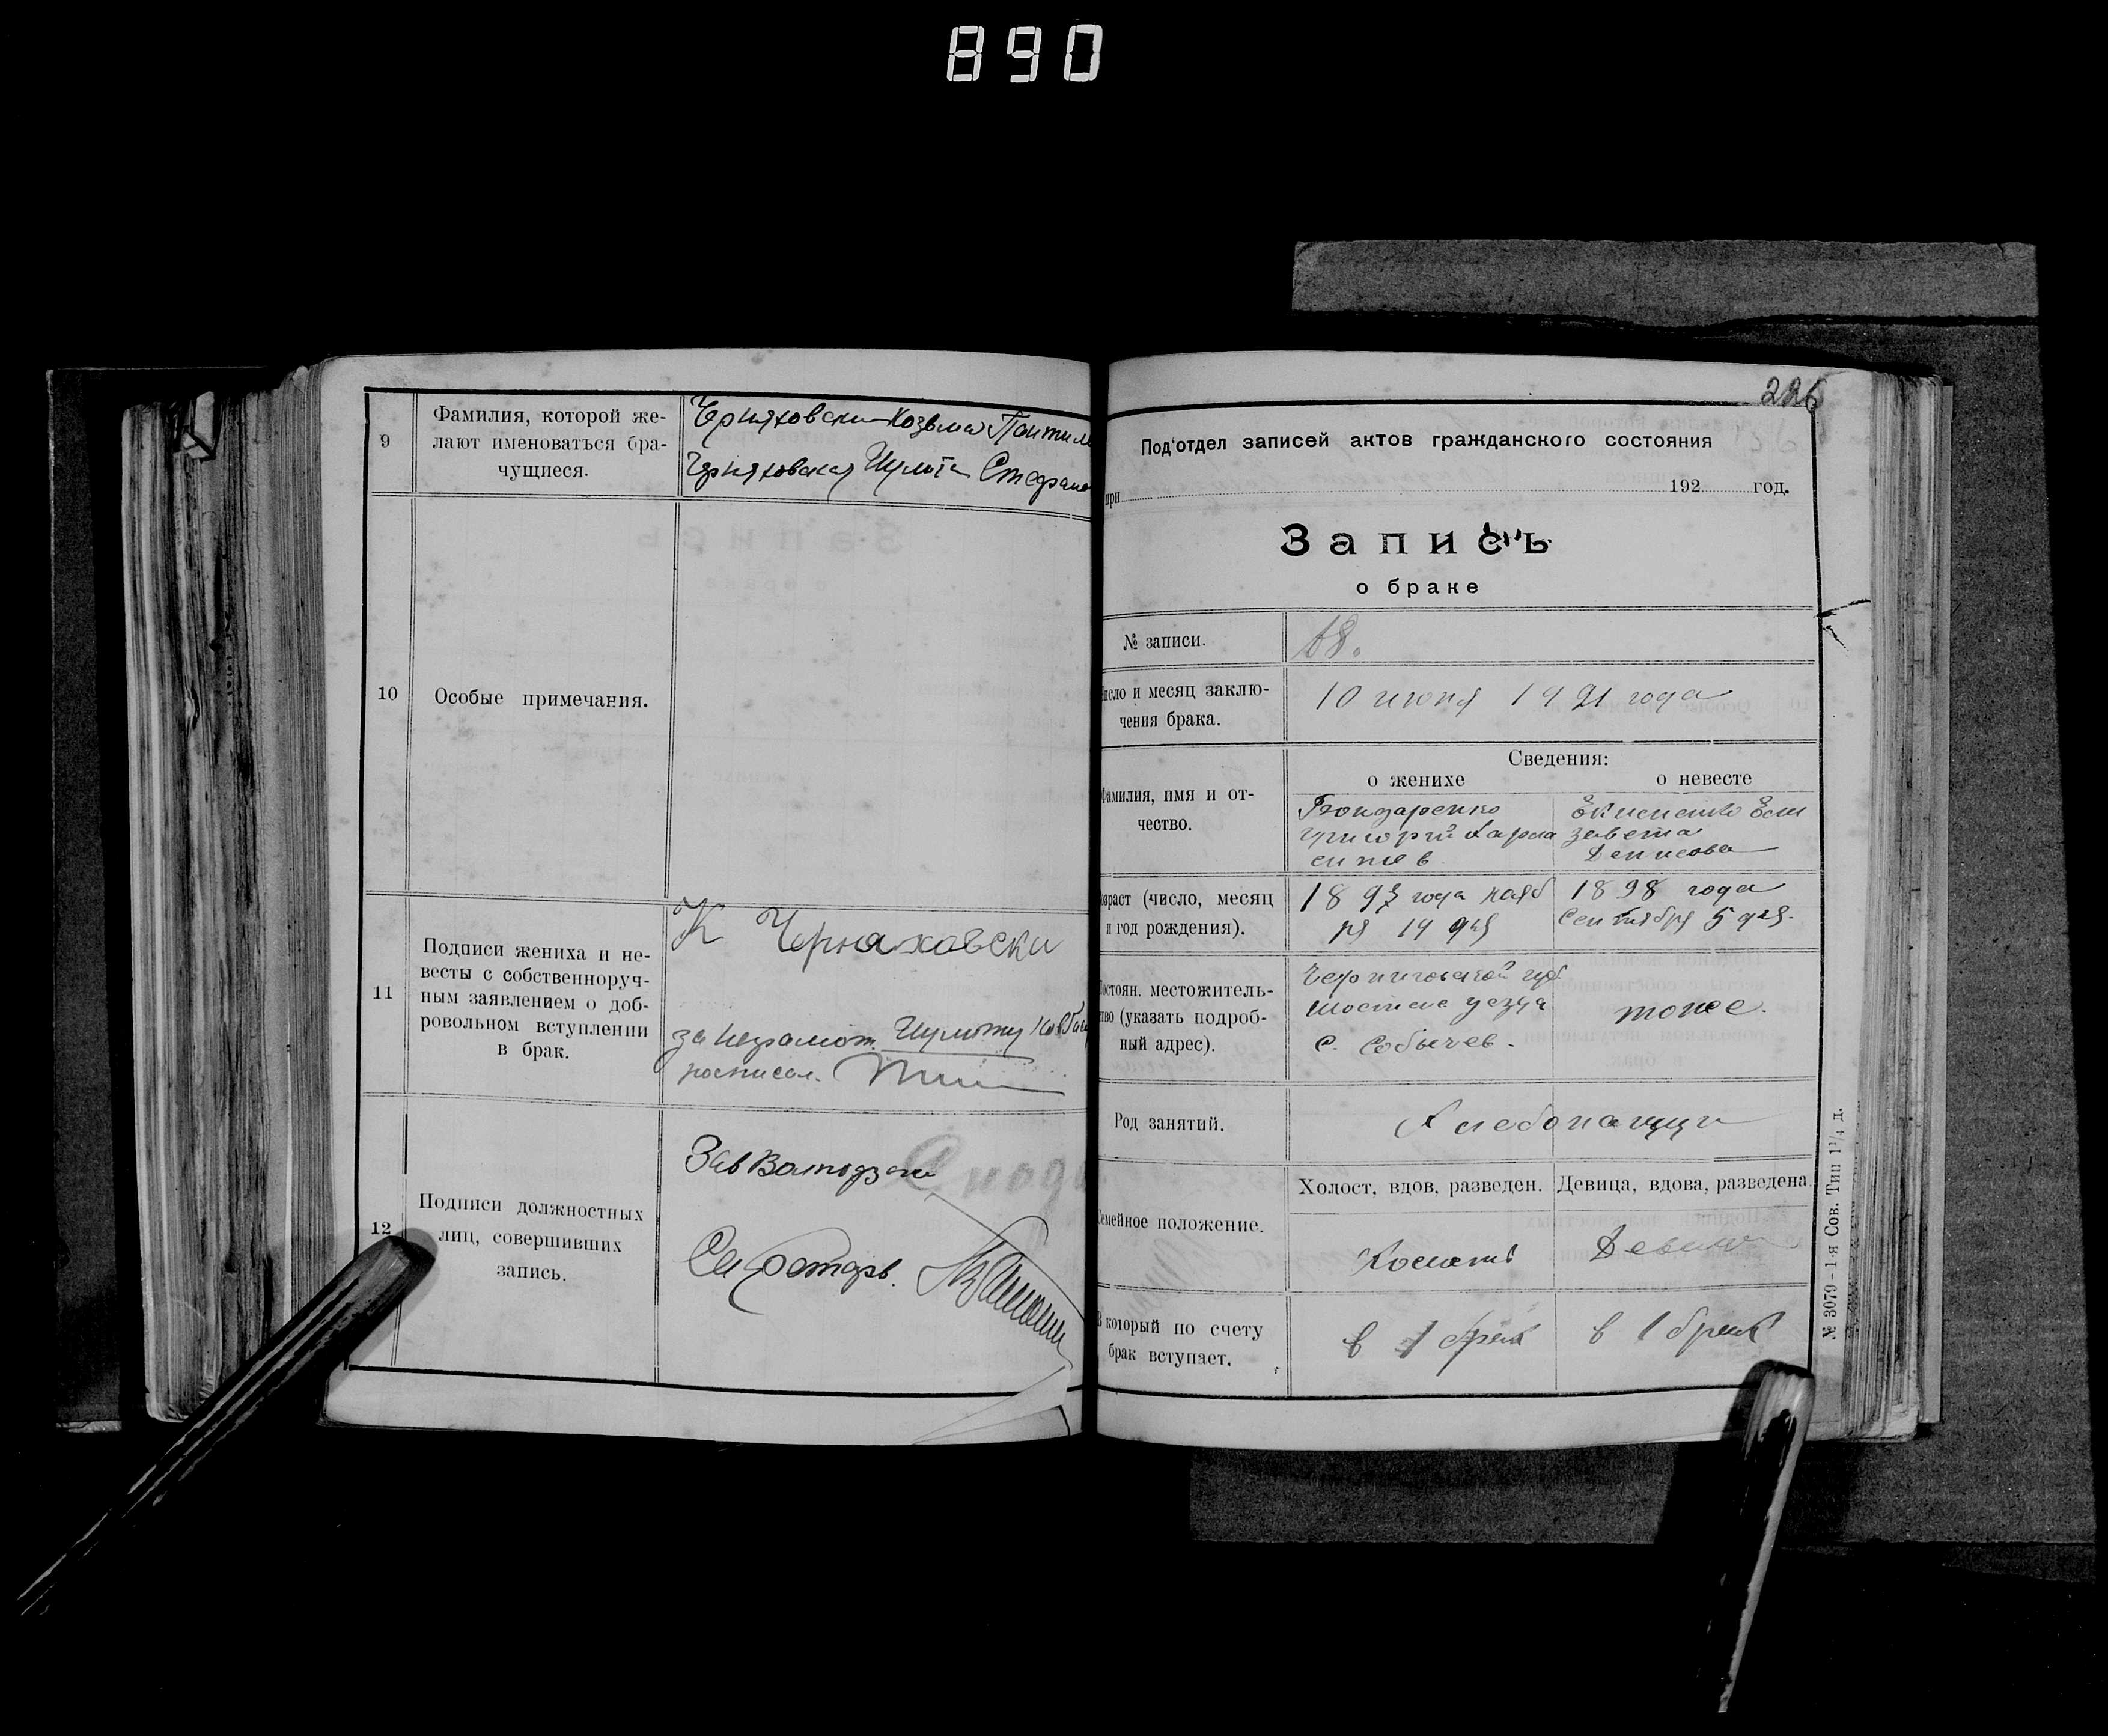 890
9
Фамилия, которой же-
лают именоваться бра-
чущиеся.
Черняховски Козьма
Черняховская
10
Особые примечания.
11
Подписи жениха и не-
весты с собственноруч-
ным заявлением о доб-
ровольном вступлении
в брак.
К Черняховски
за неграмот.
росписал.
12
Подписи должностных
лиц, совершивших
запись.
Зав
226
Под'отдел записей актов гражданского состояния
при 192 год.
Запись
о браке
№ записи.
18.
исло и месяц заклю-
чения брака.
10 июня 1921 года
Сведения:
о женихе
о невесте
амилия, имя и от-
чество.
Бондаренко
Григорий
Ели
завета
Денисова
озраст (число, месяц
и год рождения).
года нояб
ря 14 дня
1898 года
Сентября 5 дня.
остоян. местожитель-
тво (указать подроб-
ный адрес).
Черниговской губ
уезда
с. Собычев.
тоже.
Род занятий.
Хлебопащци
емейное положение.
Холост, вдов, разведен.
Девица, вдова, разведена.
Холост
Девица
В который по счету
брак вступает.
в 1 брак
в 1 брак
№ 3079 - 1-я Сов. Тип 1¹/₄ д.